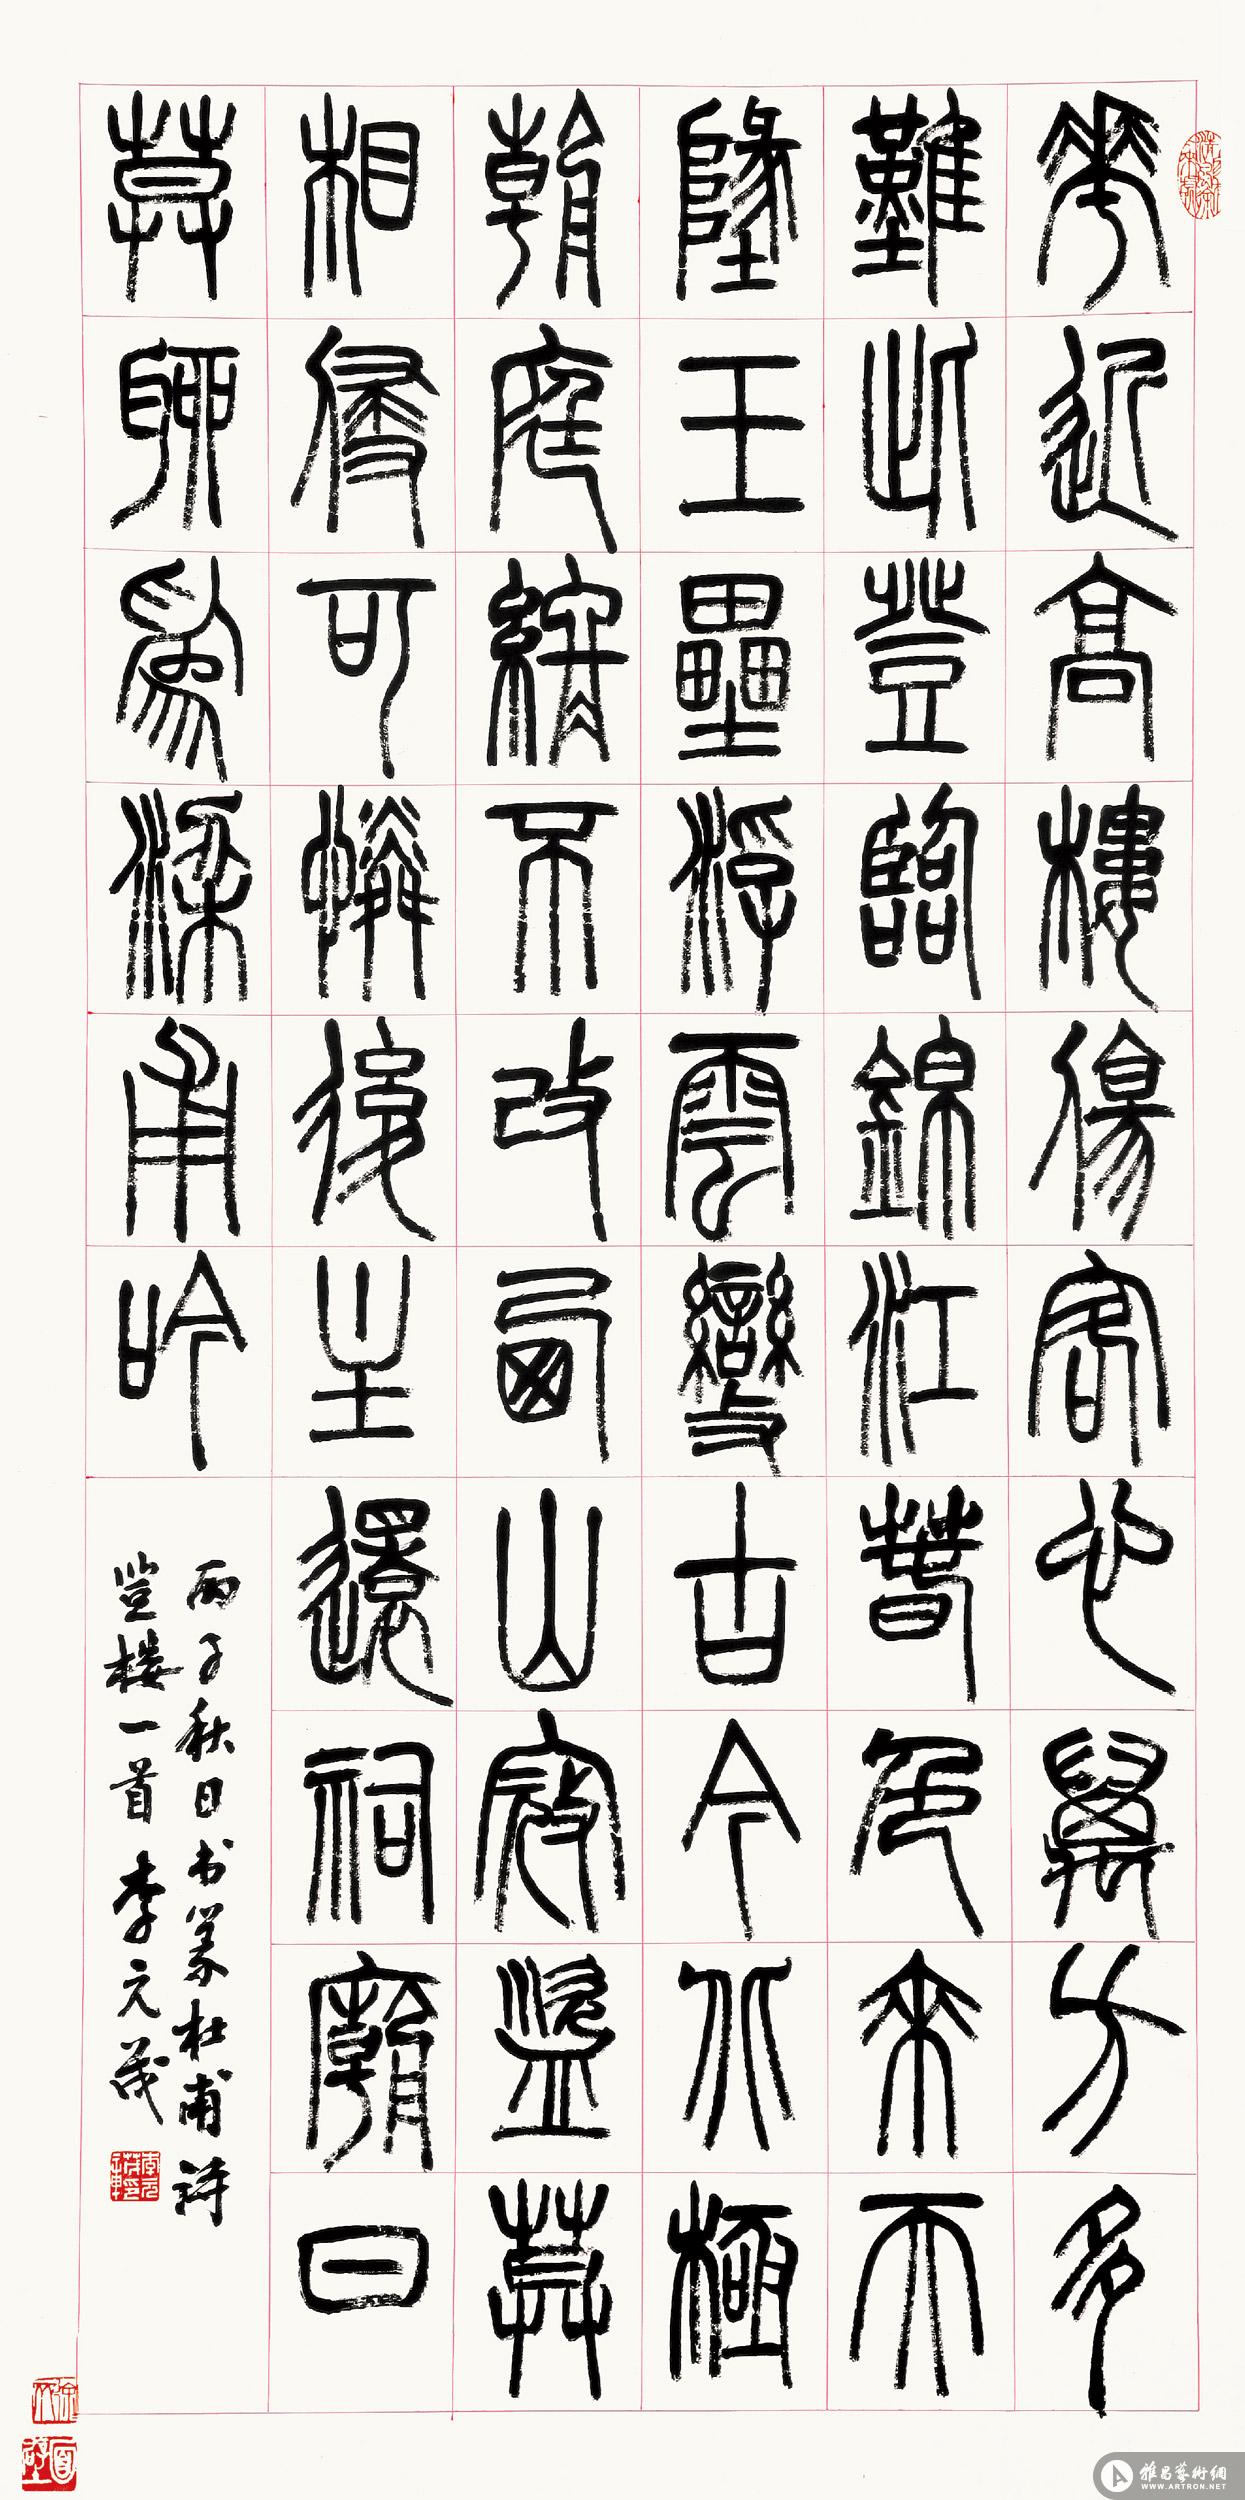 華近高樓傷客心萬方多
難此登臨錦江春色來天
墬玉壘浮雲變古今北極
朝庭終不改西山寇盜莫
相侵可憐後主還祠廟日
莫聊為梁甫吟
丙子秋日书篆杜甫诗
登楼一首 李元茂
雅昌藝術網
WWW.ARTRON.NET